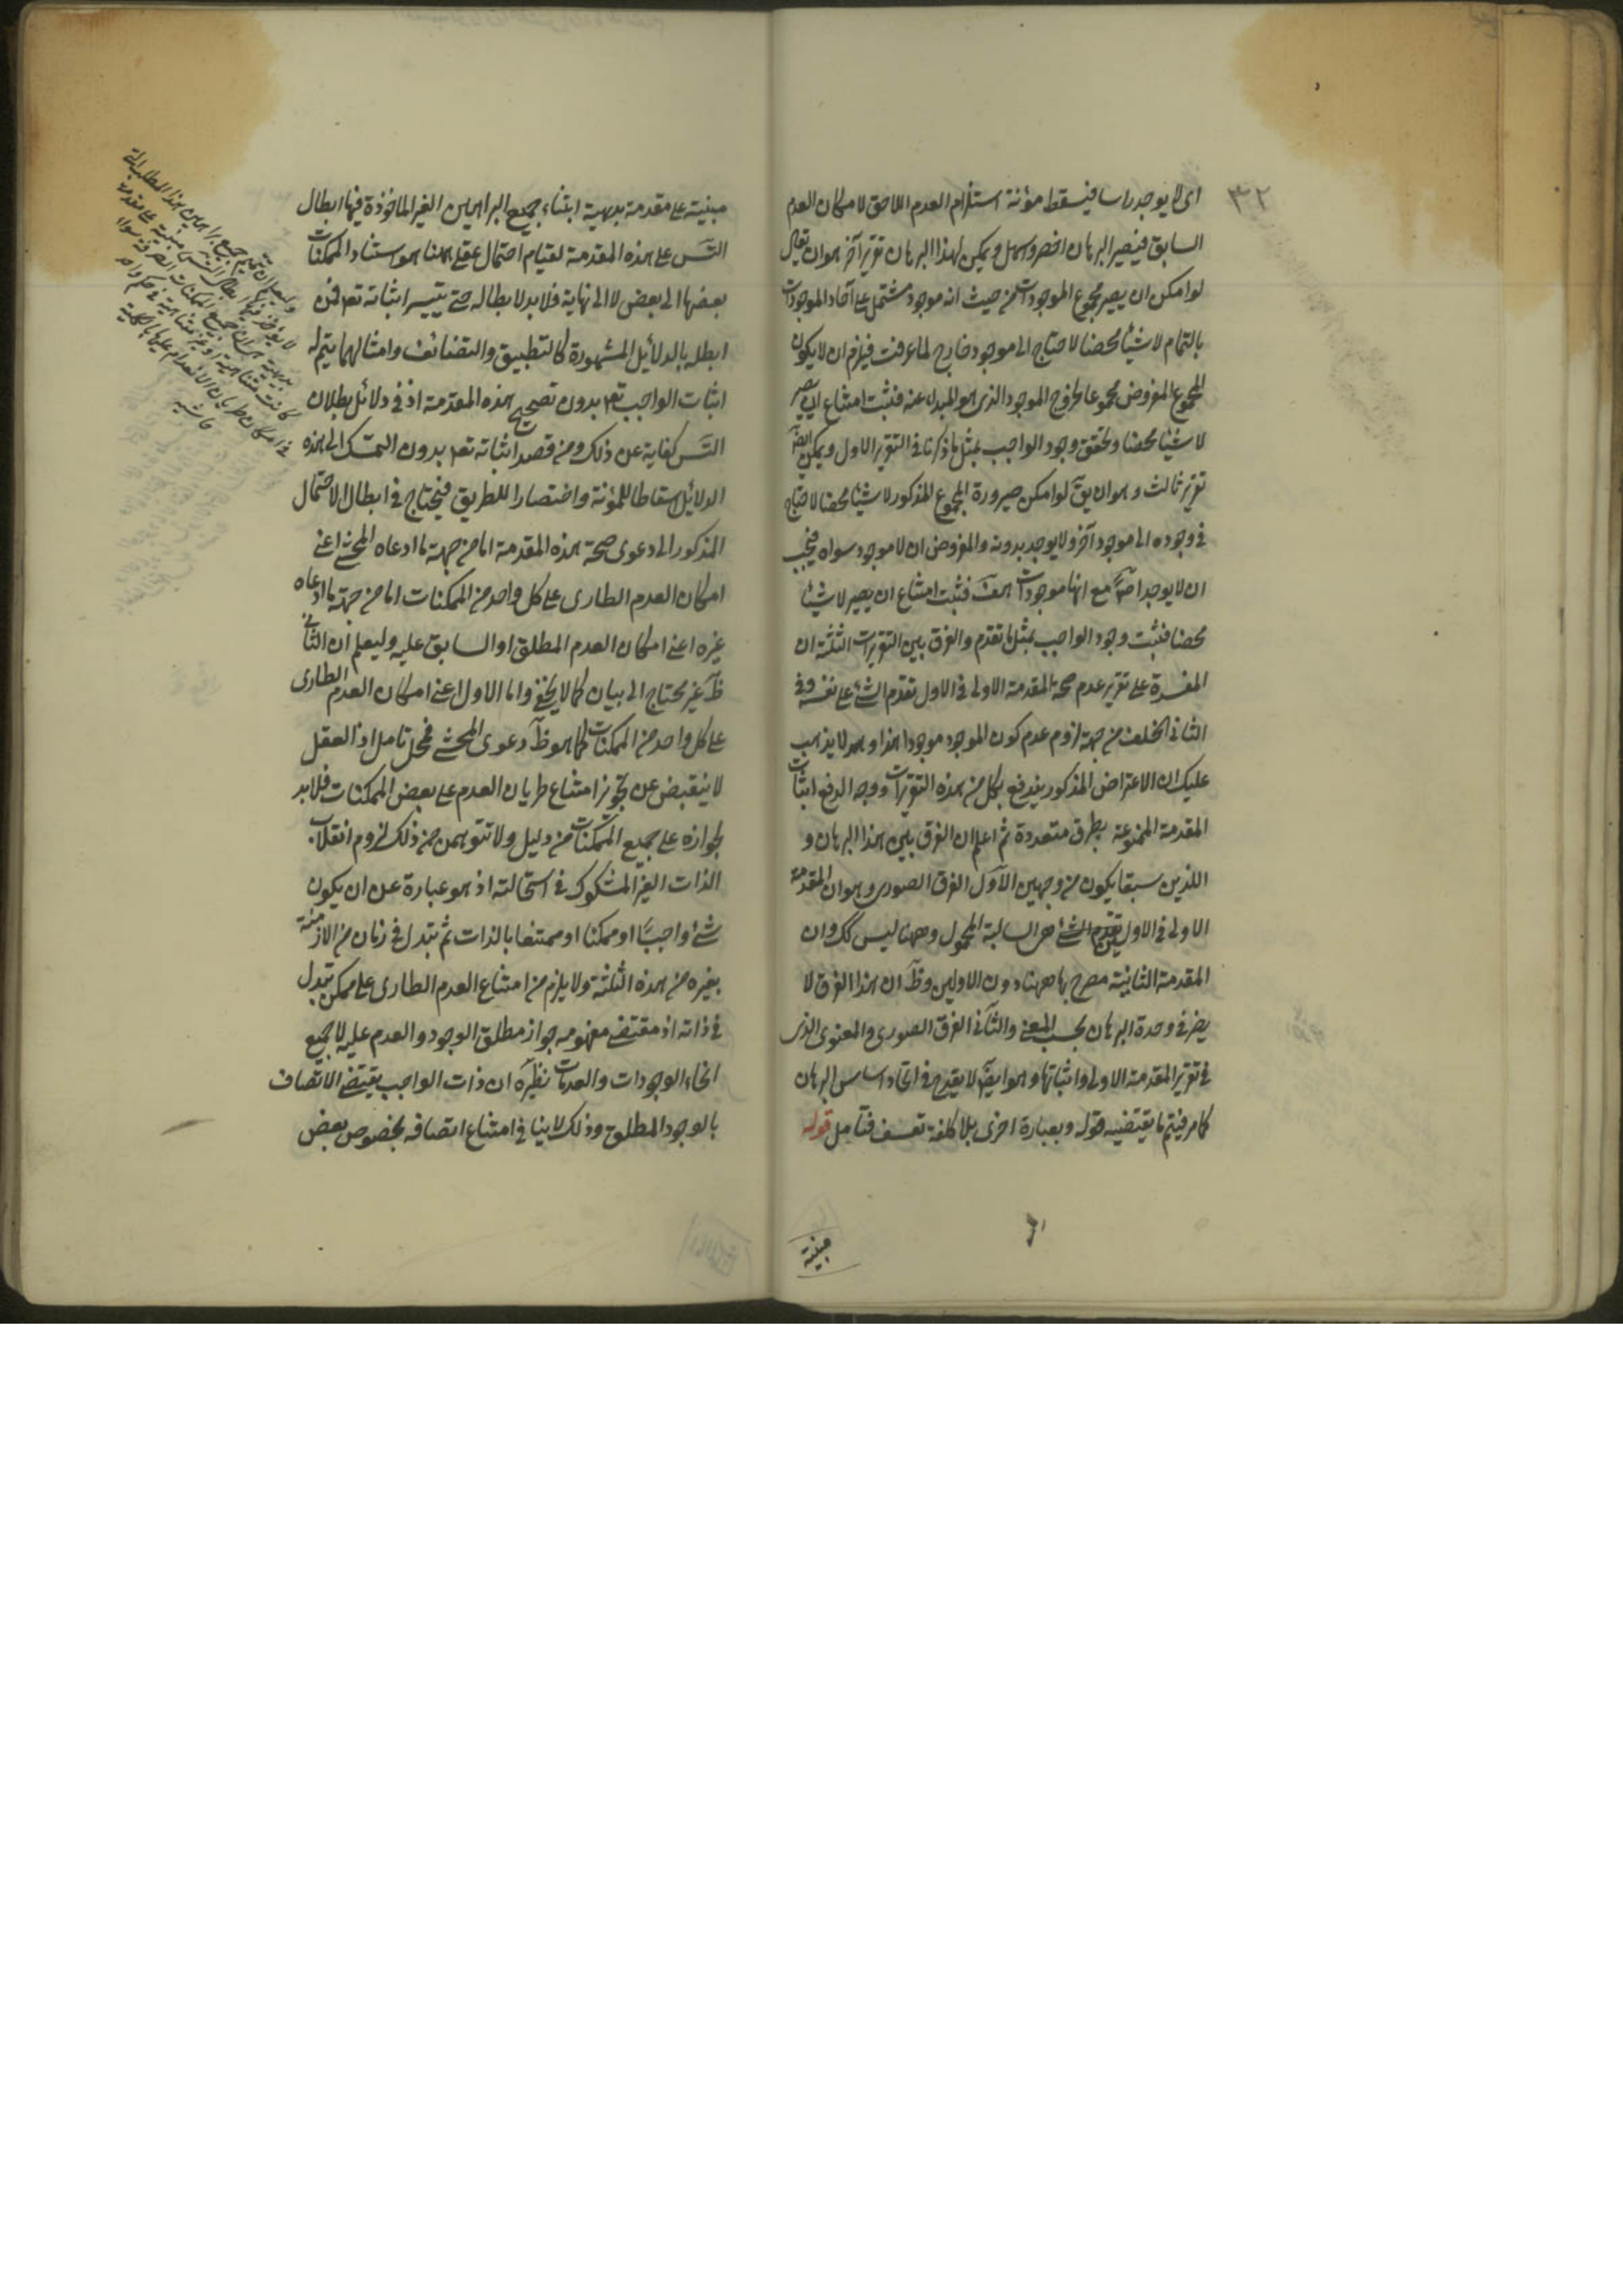 ٣٢
اى لا يوجد راسا فيسقط مؤنة استلزام العدم اللاحق لامكان العدم
السابق فيصير البرهان اخصر واسهل ويمكن لهذا البرهان تقرير آخر هو ان يقال
لو امكن ان يصير مجموع الموجودات من حيث انه موجود مشتمل على آحاد الموجودات
بالتمام لا شيئا محضا لاحتاج الى موجود خارج لما عرفت فيلزم ان لا يكون
المجموع المفروض مجموعا لخروج الموجود الذى هو المبدا عنه فثبت امتناع ان يصير
لا شيئا محضا وتحقق وجود الواجب بمثل ما ذكرنا فى التقرير الاول ويمكن ايضا
تقرير ثالث وهو ان يق لو امكن صيرورة المجموع المذكور لا شيئا محضا لاحتاج
فى وجوده الى موجود آخر ولا يوجد بدونه والمفروض ان لا موجود سواه فيجب
ان لا يوجد اصلا مع انها موجودات هف فثبت امتناع ان يصير لا شيئا
محضا فثبت وجود الواجب بمثل ما تقدم والفرق بين التقريرات الثلثة ان
المفسدة على تقرير عدم صحة المقدمة الاولى فى الاول تقدم الشئ على نفسه وفى
الثانى الخلف من جهة لزوم عدم كون الموجود موجودا هذا وهو لا يذهب
عليك ان الاعتراض المذكور يندفع بكل من هذه التقريرات ووجه الدفع اثبات
المقدمة الممنوعة بطرق متعددة ثم اعلم ان الفرق بين هذا البرهان و
اللذين سبقا يكون من وجهين الاول الفرق الصورى وهو ان المقدمة
الاولى فى الاولين تقدم الشئ من السالبة المحمول وههنا ليس كك وان
المقدمة الثانية مصرح بها ههنا دون الاولين وظ ان هذا الفرق لا
يضر فى وحدة البرهان بحسب المعنى والثانى الفرق الصورى والمعنوى الذى
فى تقرير المقدمة الاولى واثباتها وهو ايضا لا يقدح فى اتحاد اساس البرهان
كما مر فيتم ما يقتضيه قوله وبعبارة اخرى بلا كلفة تعسف فتامل قوله
مبنية
مبنية على مقدمة بديهية ابتناء جميع البراهين الغير الماخوذة فيها ابطال
التس على هذه المقدمة لقيام احتمال عقلى ههنا هو استناد الممكنات
بعضها الى بعض لا الى نهاية فلا بد لابطاله حتى يتيسر اثباته تعم فمن
ابطله بالدلائل المشهورة كالتطبيق والتضائف وامثالهما يتم له
اثبات الواجب تعم بدون تصحيح هذه المقدمة اذ فى دلائل بطلان
التس كفاية عن ذلك ومن قصد اثباته تعم بدون التمسك الى هذه
الدلائل اسقاطا للمؤنة واختصارا للطريق فيحتاج فى ابطال الاحتمال
المذكور الى دعوى صحة هذه المقدمة اما من جهة ما ادعاه المحشى اعنى
امكان العدم الطارى على كل واحد من الممكنات اما من جهة ما ادعاه
غيره اعنى امكان العدم المطلق او السابق عليه وليعلم ان الثانى
ظ غير محتاج الى بيان كما لا يخفى واما الاول اعنى امكان العدم الطارى
على كل واحد من الممكنات كما هو ظ دعوى المحشى فمحل تامل اذ العقل
لا ينقبض عن تجويز امتناع طريان العدم على بعض الممكنات فلا بد
لجوازه على جميع الممكنات من دليل ولا تتوهمن من ذلك لزوم انقلاب
الذات الغير المشكوك فى استحالته اذ هو عبارة عن ان يكون
شئ واجبا او ممكنا او ممتنعا بالذات ثم يتبدل فى زمان من الازمنة
بغيره من هذه الثلثة ولا يلزم من امتناع العدم الطارى على ممكن تبدل
فى ذاته اذ مقتضى مفهومه جواز مطلق الوجود والعدم عليه لا جميع
انحاء الوجودات والعدمات نظيره ان ذات الواجب يقتضى الاتصاف
بالوجود المطلق وذلك لا ينافى امتناع اتصافه بخصوص بعض